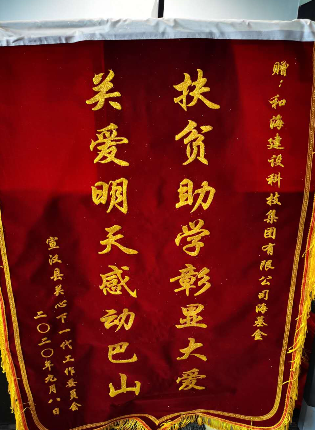 赠：和海建设科技集团有限公司海基金
扶贫助学彰显大爱
关爱明天感动巴山
宣汉县关心下一代工作委员会
二〇二〇年九月八日